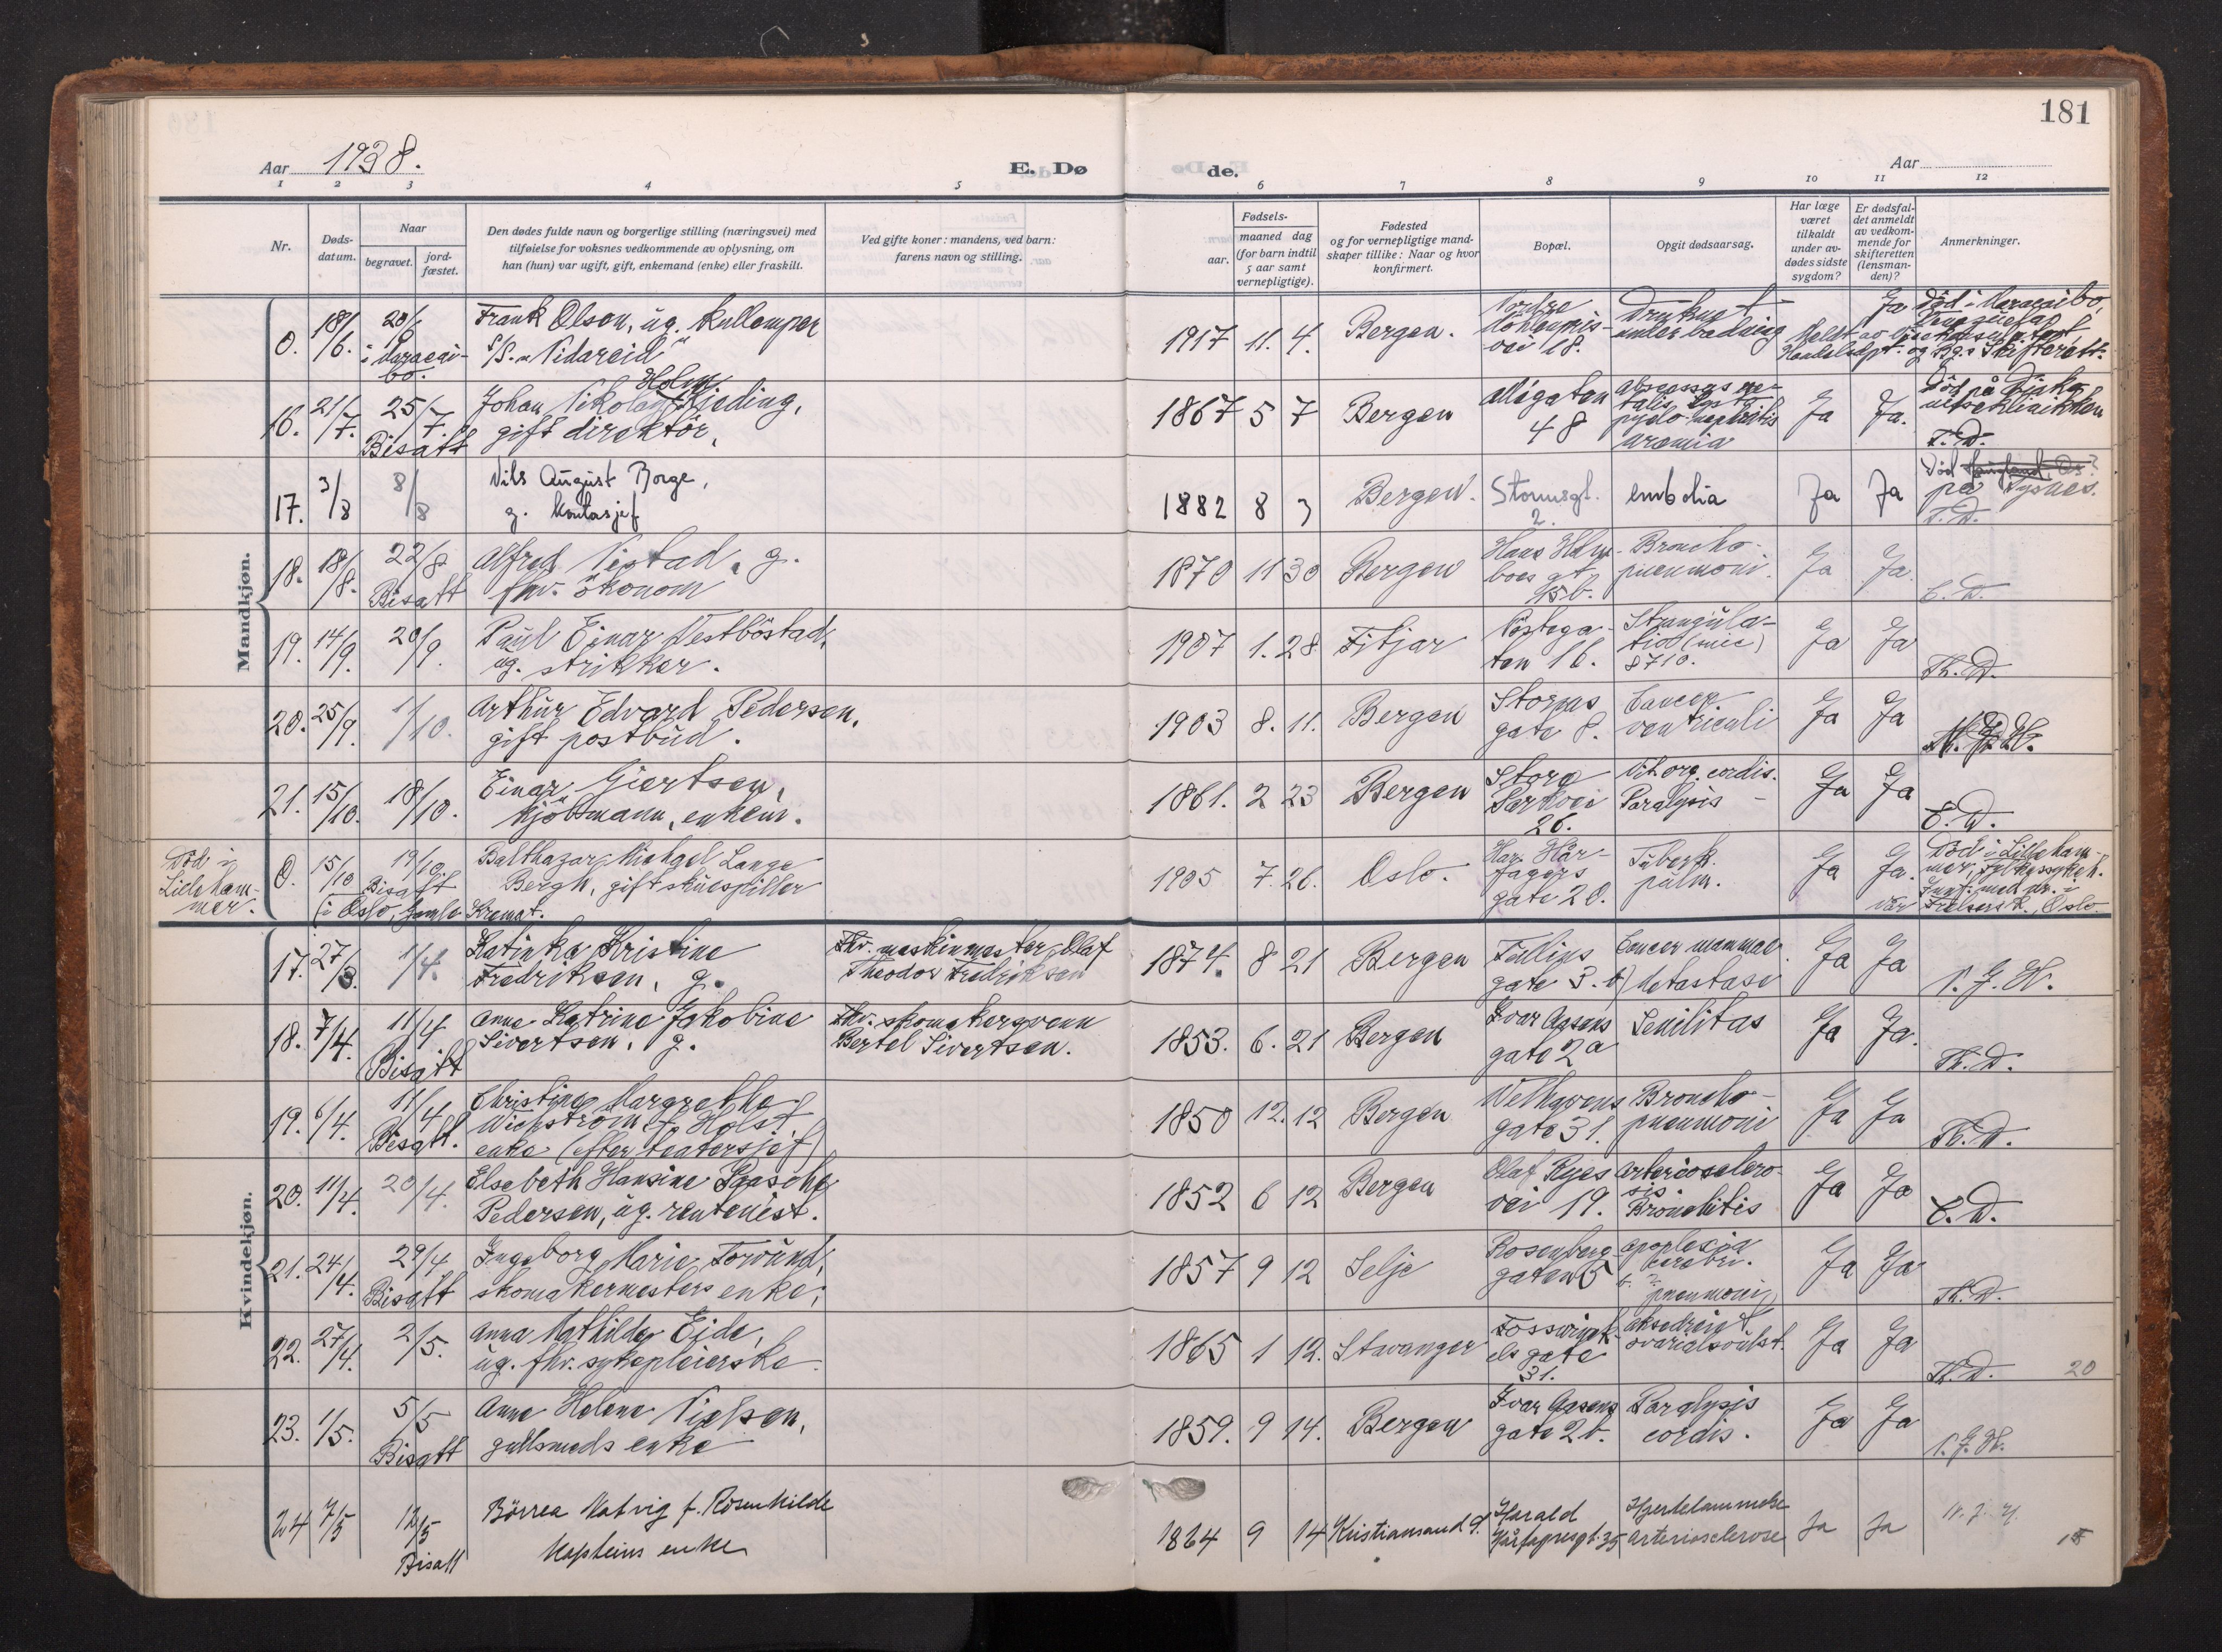 181
Aar 1938.
E. Dø
de.
Aar
1 2 3 4 5 6 7 8 9 10 11 12
Nr.
Døds-
datum.
Naar
begravet.
jord-
fæstet.
Den dødes fulde navn og borgerlige stilling (næringsvei) med
tilføielse for voksnes vedkommende av oplysning, om
han (hun) var ugift, gift, enkemand (enke) eller fraskilt.
Ved gifte koner: mandens, ved barn:
farens navn og stilling.
Fødsels-
aar.
maaned dag
(for barn indtil
5 aar samt
vernepligtige).
Fødested
og for vernepligtige mand-
skaper tillike: Naar og hvor
konfirmert.
Bopæl.
Opgit dødsaarsag.
Har læge
været
tilkaldt
under av-
dødes sidste
sygdom?
Er dødsfal-
det anmeldt
av vedkom-
mende for
skifteretten
(lensman-
den)?
Anmerkninger.
Mandkjøn.
0. 18/6. 20/6
Frank Olson, ug. kullemper
S/S. "Vidareid"
1917 11. 4. Bergen.
vei 18.
Druknet
under badning
Ja
Død i Maracaibo,
Venezuela
16. 21/7. 25/7. Bisatt
Johan Nikolay Holm Kjeding,
gift direktör,
1867 5 7 Bergen
Allégaten
48
pyelo-nephritis
uræmia
Ja Ja.
Th. D.
17. 3/8 8/8
Nils August Borge,
g. kontorsjef
1882 8 3 Bergen.
Stormsgt.
2.
embolia
Ja Ja
Død Haugland, Os?
på Tysnes.
18. 18/8. 22/8 Bisatt
Alfred Nestad, g.
fhv. ökonom
1870 11 30 Bergen
Hans Holm-
boes gt.
15b.
Broncho-
pneumoni.
Ja Ja.
19. 14/9. 20/9.
Paul Einar Vestböstad,
ug. strikker.
1907 1. 28 Fitjar
Nöstega-
ten 16.
Strangula-
tio
8710.
Ja Ja
Th. D.
20. 25/9. 1/10.
Arthur Edvard Pedersen,
gift postbud.
1903 8. 11. Bergen
Storms
gate 8.
Cancer
ventriculi
Ja Ja
21. 15/10. 18/10.
Einar Giertsen,
kjöbmann, enkem.
1861. 2 23 Bergen
Store
Parkvei
26.
Vit. org. cordis.
Paralysis -
Ja Ja
C. D.
Død i
Lilleham-
mer.
0. 15/10 19/10. Bisatt
(i Oslo, Gamle Kremat.
Balthazar Michael Lange
Bergh, gift skuespiller
1905 7. 26. Oslo.
Har. Hår-
fagers
gate 20.
Tuberk.
pulm.
Ja Ja.
Död i Lilleham-
mer, fylkessykeh.
Vår Frelsers k., Oslo.
Kvindekjøn.
17. 27/3. 1/4.
Katinka Kristine
Fredriksen, g.
Fhv. maskinmester Olaf
Theodor Fredriksen
1874. 8 21 Bergen
Fullius
gate 3. b)
Cancer mammae.
Metastase
Ja Ja
N. J. H.
18. 7/4. 11/4 Bisatt
Anne Katrine Jakobine
Sivertsen, g.
Fhv. skomakersvenn
Bertel Sivertsen.
1853. 6. 21 Bergen
Ivar Aasens
gate 2a
Senilitas
Ja Ja.
Th. D.
19. 6/4. 11/4 Bisatt.
Christine Margrethe
Wickström, f. Holst,
enke (efter teatersjef)
1850 12. 12 Bergen
Welhavens
gate 31.
Broncho-
pneumoni
Ja Ja
Th. D.
20. 11/4. 20/4.
Elsebeth Hansine Paasche
Pedersen, ug. rentenist.
1852 6 12 Bergen
Olaf Ryes
vei 19.
Arteriosclero-
sis
Bronchitis
Ja Ja
C. D.
21. 24/4. 29/4 Bisatt
Ingeborg Marie Torvund,
skomakermesters enke,
1857 9 12 Selje
Rosenberg-
gaten 5
Apoplexia
cerebri.
pneumoni
Ja Ja
Th. D.
22. 27/4. 2/5.
Anna Mathilde Eide,
ug. fhv. sykepleierske.
1865 1 12. Stavanger
Fosswinck-
els gate
31.
ovarialsvulst.
Ja Ja
Th. D. 20
23. 1/5. 5/5 Bisatt
Anne Helene Nielsen,
gullsmeds enke
1859. 9 14. Bergen
Ivar Aasens
gate 2b.
Paralysis
cordis.
Ja Ja
N. J. H.
24 7/5 12/5 Bisatt
Börrea Matvig f. Rosenkilde
Kapteins enke
1864 9 14 Kristiansand S.
Harald
Hårfagresgt. 35
Hjertelammelse
Arteriosclerose
Ja Ja
15